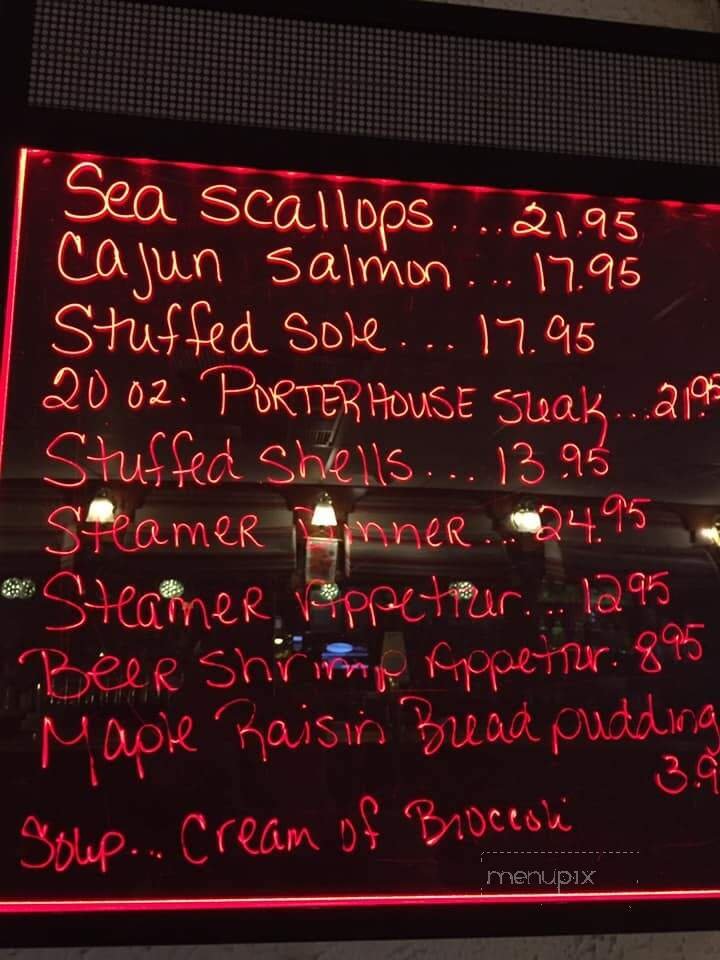 Sea Scallops.... 21.95
Cajun Salmon.... 17.95
Stuffed Sole.... 17.95
20 oz. PORTERHOUSE Steak... 21.95
Stuffed Shells.... 13.95
Steamer Dinner.... 24.95
Steamer Appetizer.... 12.95
Beer Shrimp Appetizer. 8.95
Maple Raisin Bread pudding
3.9
Soup... Cream of Broccoli
menupix